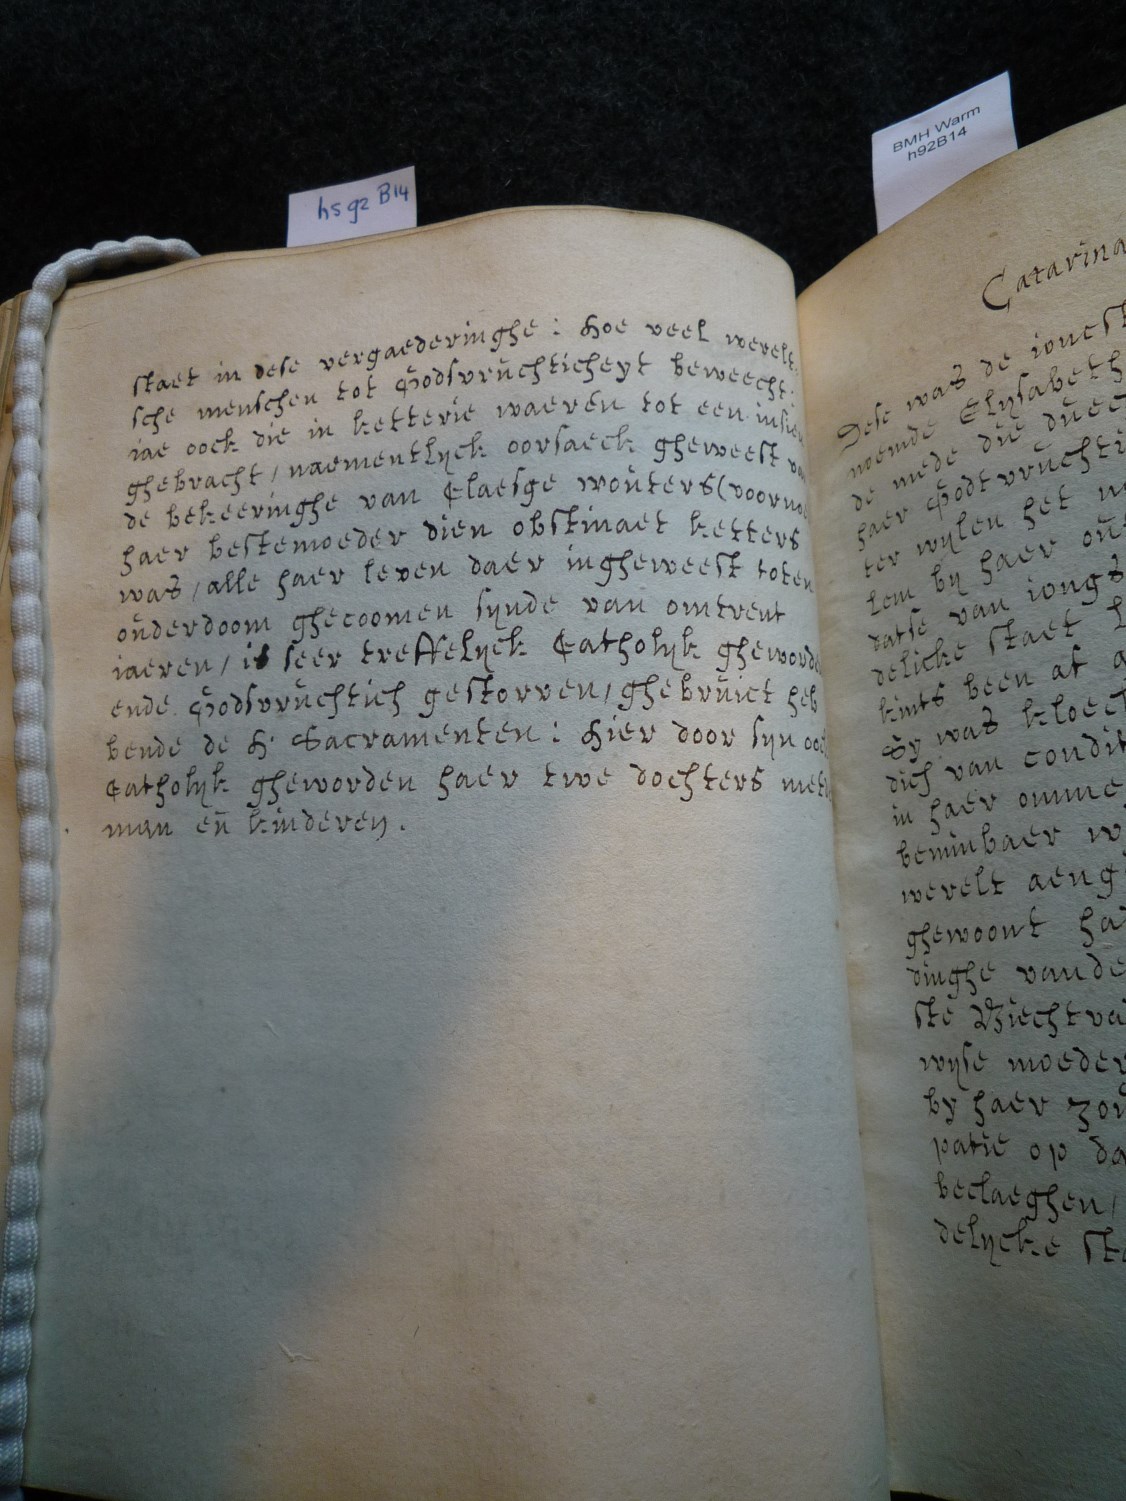 hs 92 B14
BMH Warm
h92B14
staet in dese vergaederinghe : hoe veel werelt
sche menschen tot Godsvruchticheyt beweecht :
iae oock die in ketterie waeren tot een insien
ghebracht / naementlijck oorsaeck gheweest van
de bekeeringhe van Claesge wouters (voorno
haer bestemoeder dien obstinaet ketters
was / alle haer leven daer in gheweest toten
ouderdoom ghecoomen synde van omtrent
iaeren / is seer treffelijck Catholijk gheworde
ende Godsvruchtich gestorven / ghebruict heb
bende de H. Sacramenten : hier door syn ooc
Catholijk gheworden haer twe dochters met
man eñ kinderen .
Catarina
Dese was de ioncst
noemde Elysabeth
de mede die duec
haer Godtvruchti
ter wylen het
lem by haer ou
datse van iongs
delicke staet
kints been af a
Sy was kloec
dich van condit
in haer omme
beminbaer w
werelt aeng
ghewoont ha
dinghe van de
ste Biechtva
wijse moeder
by haer zou
patie op da
beclaeghen /
delijcke sta